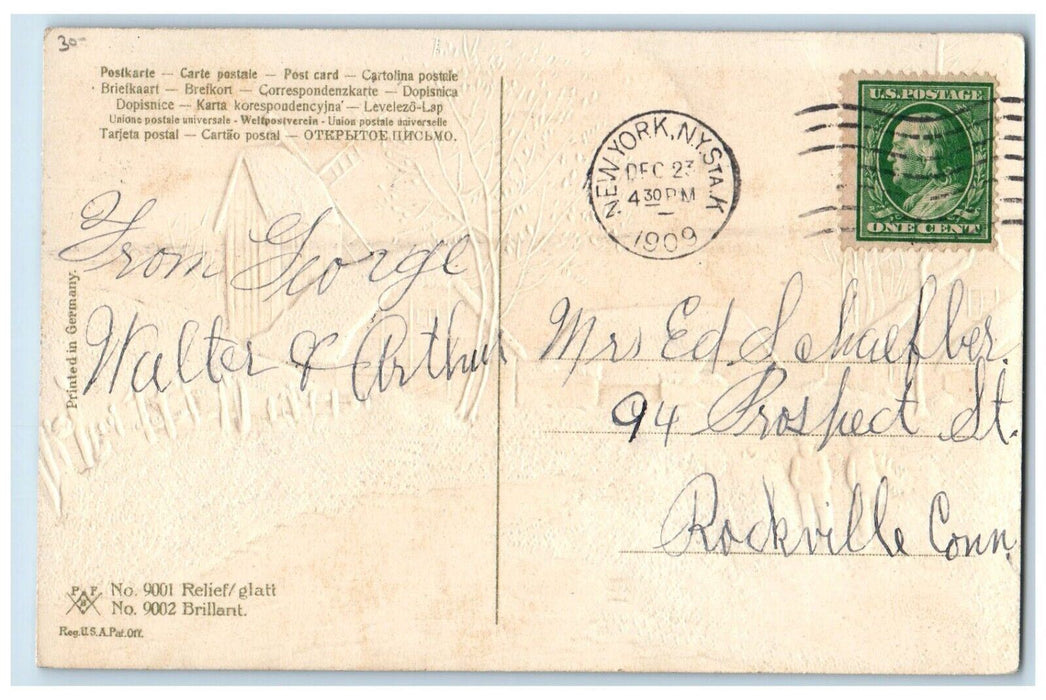 30-
Postkarte — Carte postale — Post card — Cartolina postale
Briefkaart — Brefkort — Correspondenzkarte — Dopisnica
Dopisnice — Karta korespondencyjna — Levelező-Lap
Unione postale universale - Weltpostverein - Union postale universelle
Tarjeta postal — Cartão postal — ОТКРЫТОЕ ПИСЬМО.
U.S. POSTAGE
ONE CENT
NEW YORK, N.Y. STA. K
DEC 23
4 30 PM
1909
From George
Walter & Arthur
Printed in Germany.
Mrs Ed
94 Prospect St.
Rockville Conn.
P F
No. 9001 Relief/glatt
No. 9002 Brillant.
Reg. U.S.A. Pat. Off.